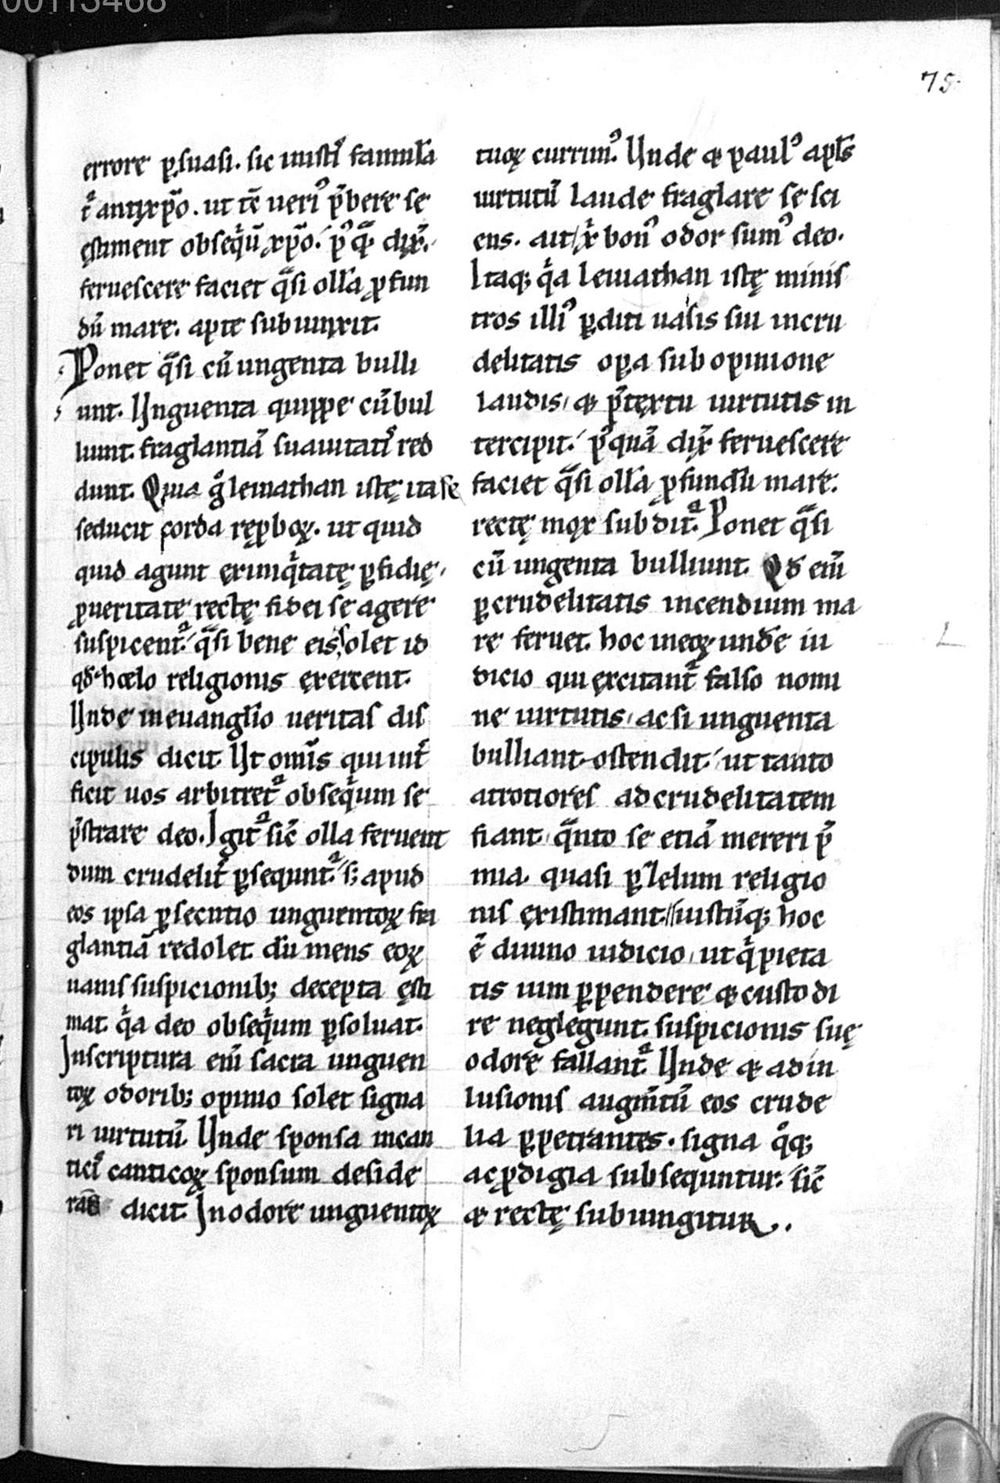 00113468
75.
errore ꝑsuasi. sic iniustī famula
t᷑ antixp̄o. ut tē neri᷒ p̄bere se
ęstiment obseq̇ū xp̄o. p᷒ qᷓ dix̄.
feruescere faciet qᷓsi ollā ꝓfun
dū mare. apte subiunxit.
Ponet qᷓsi cū ungenta bulli
unt. Unguenta quippe cū bul
liunt. fraglantiā suauitatis red
dunt. Quia g̊ leuiathan istę ita se
seducit corda rep̱boꝝ. ut quid
quid agunt ex iniq̇tatę ꝑfidię,
ꝓ ueritate rectę fidei se agere
suspicent᷑. qᷓsi bene eis olet id
qđ zelo religionis exercent.
Unde in euanglīo ueritas dis
cipulis dicit. Ut omīs qui int̄
ficit uos arbitret᷑ obseq̇um se
p̄strare deo. Igit᷑ sic̄ olla feruent
dum crudelit̄ ꝑsequnt᷑. s; apud
eos ipsa ꝑsecutio unguentoꝝ fra
glantiā redolet. dū mens eoꝝ
uanis suspicionib; decepta ęsti
mat. q̇a deo obseq̇um ꝑsoluat.
In scriptura enī sacra unguen
toꝝ odorib; opinio solet signa
ri uirtutū. Unde sponsa in can
ticis canticoꝝ sponsum deside
rans dicit. In odore unguentoꝝ
tuoꝝ currim᷒. Unde & paul᷒ apl̄s
uirtutū laude fraglare se sci
ens. ait, xp̄i bon᷒ odor sum᷒ deo.
Itaq; q̇a leuiathan istę minis
tros illi᷒ ꝑditi uasis siu incru
delitatis opꝑa sub opinione
laudis, & p̄textu uirtutis in
tercipit. p᷒quā dix̄ feruescere
faciet qᷓsi ollā ꝓfundū mare.
rectę mox subdit᷑. Ponet qᷓsi
cū ungenta bulliunt. Qđ enī
ꝑ crudelitatis incendium ma
re feruet. hoc in eoꝝ unde iu
dicio qui excitant᷑ falso nomi
ne uirtutis, ac si unguenta
bulliant ostendit, ut tanto
atrotiores ad crudelitatem
fiant, qᷓnto se etiā mereri p̄
mia. quasi ꝑ zelum religio
nis existimant. iustūq; hoc
ē diuino iudicio, ut q̇ pieta
tis uim ꝑpendere & custodi
re neglegunt. suspicionis suę
odore fallant᷑. Unde & ad in
lusionis augm̄tū eos crude
lia ꝑpetrantes. signa q̊q;
ac ꝓdigia subsequntur. sic̄
& rectę subiungitur..
L